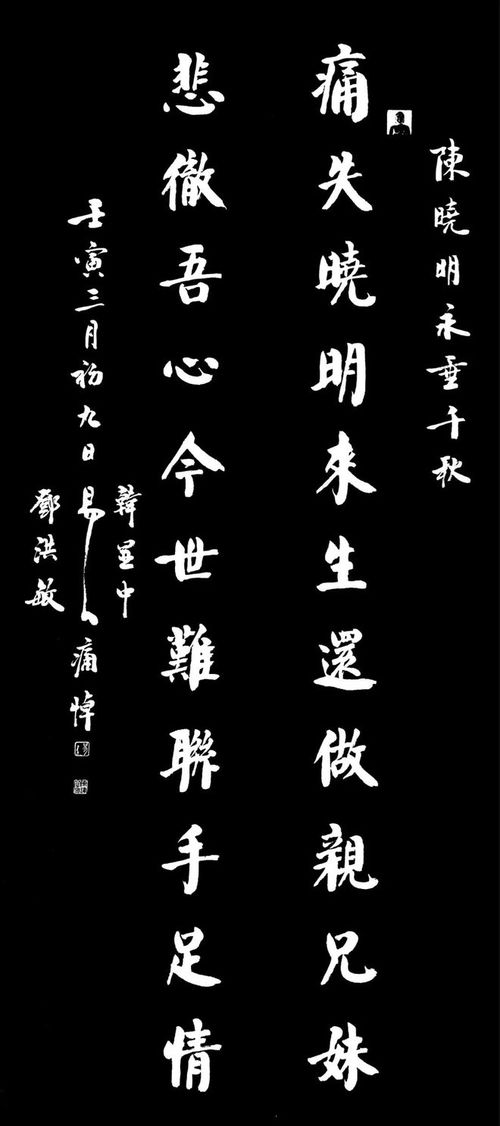 陳曉明永垂千秋
痛失曉明來生還做親兄妹
悲徹吾心今世難聯手足情
壬寅三月初九日易
韓 中
鄧洪敏
痛悼